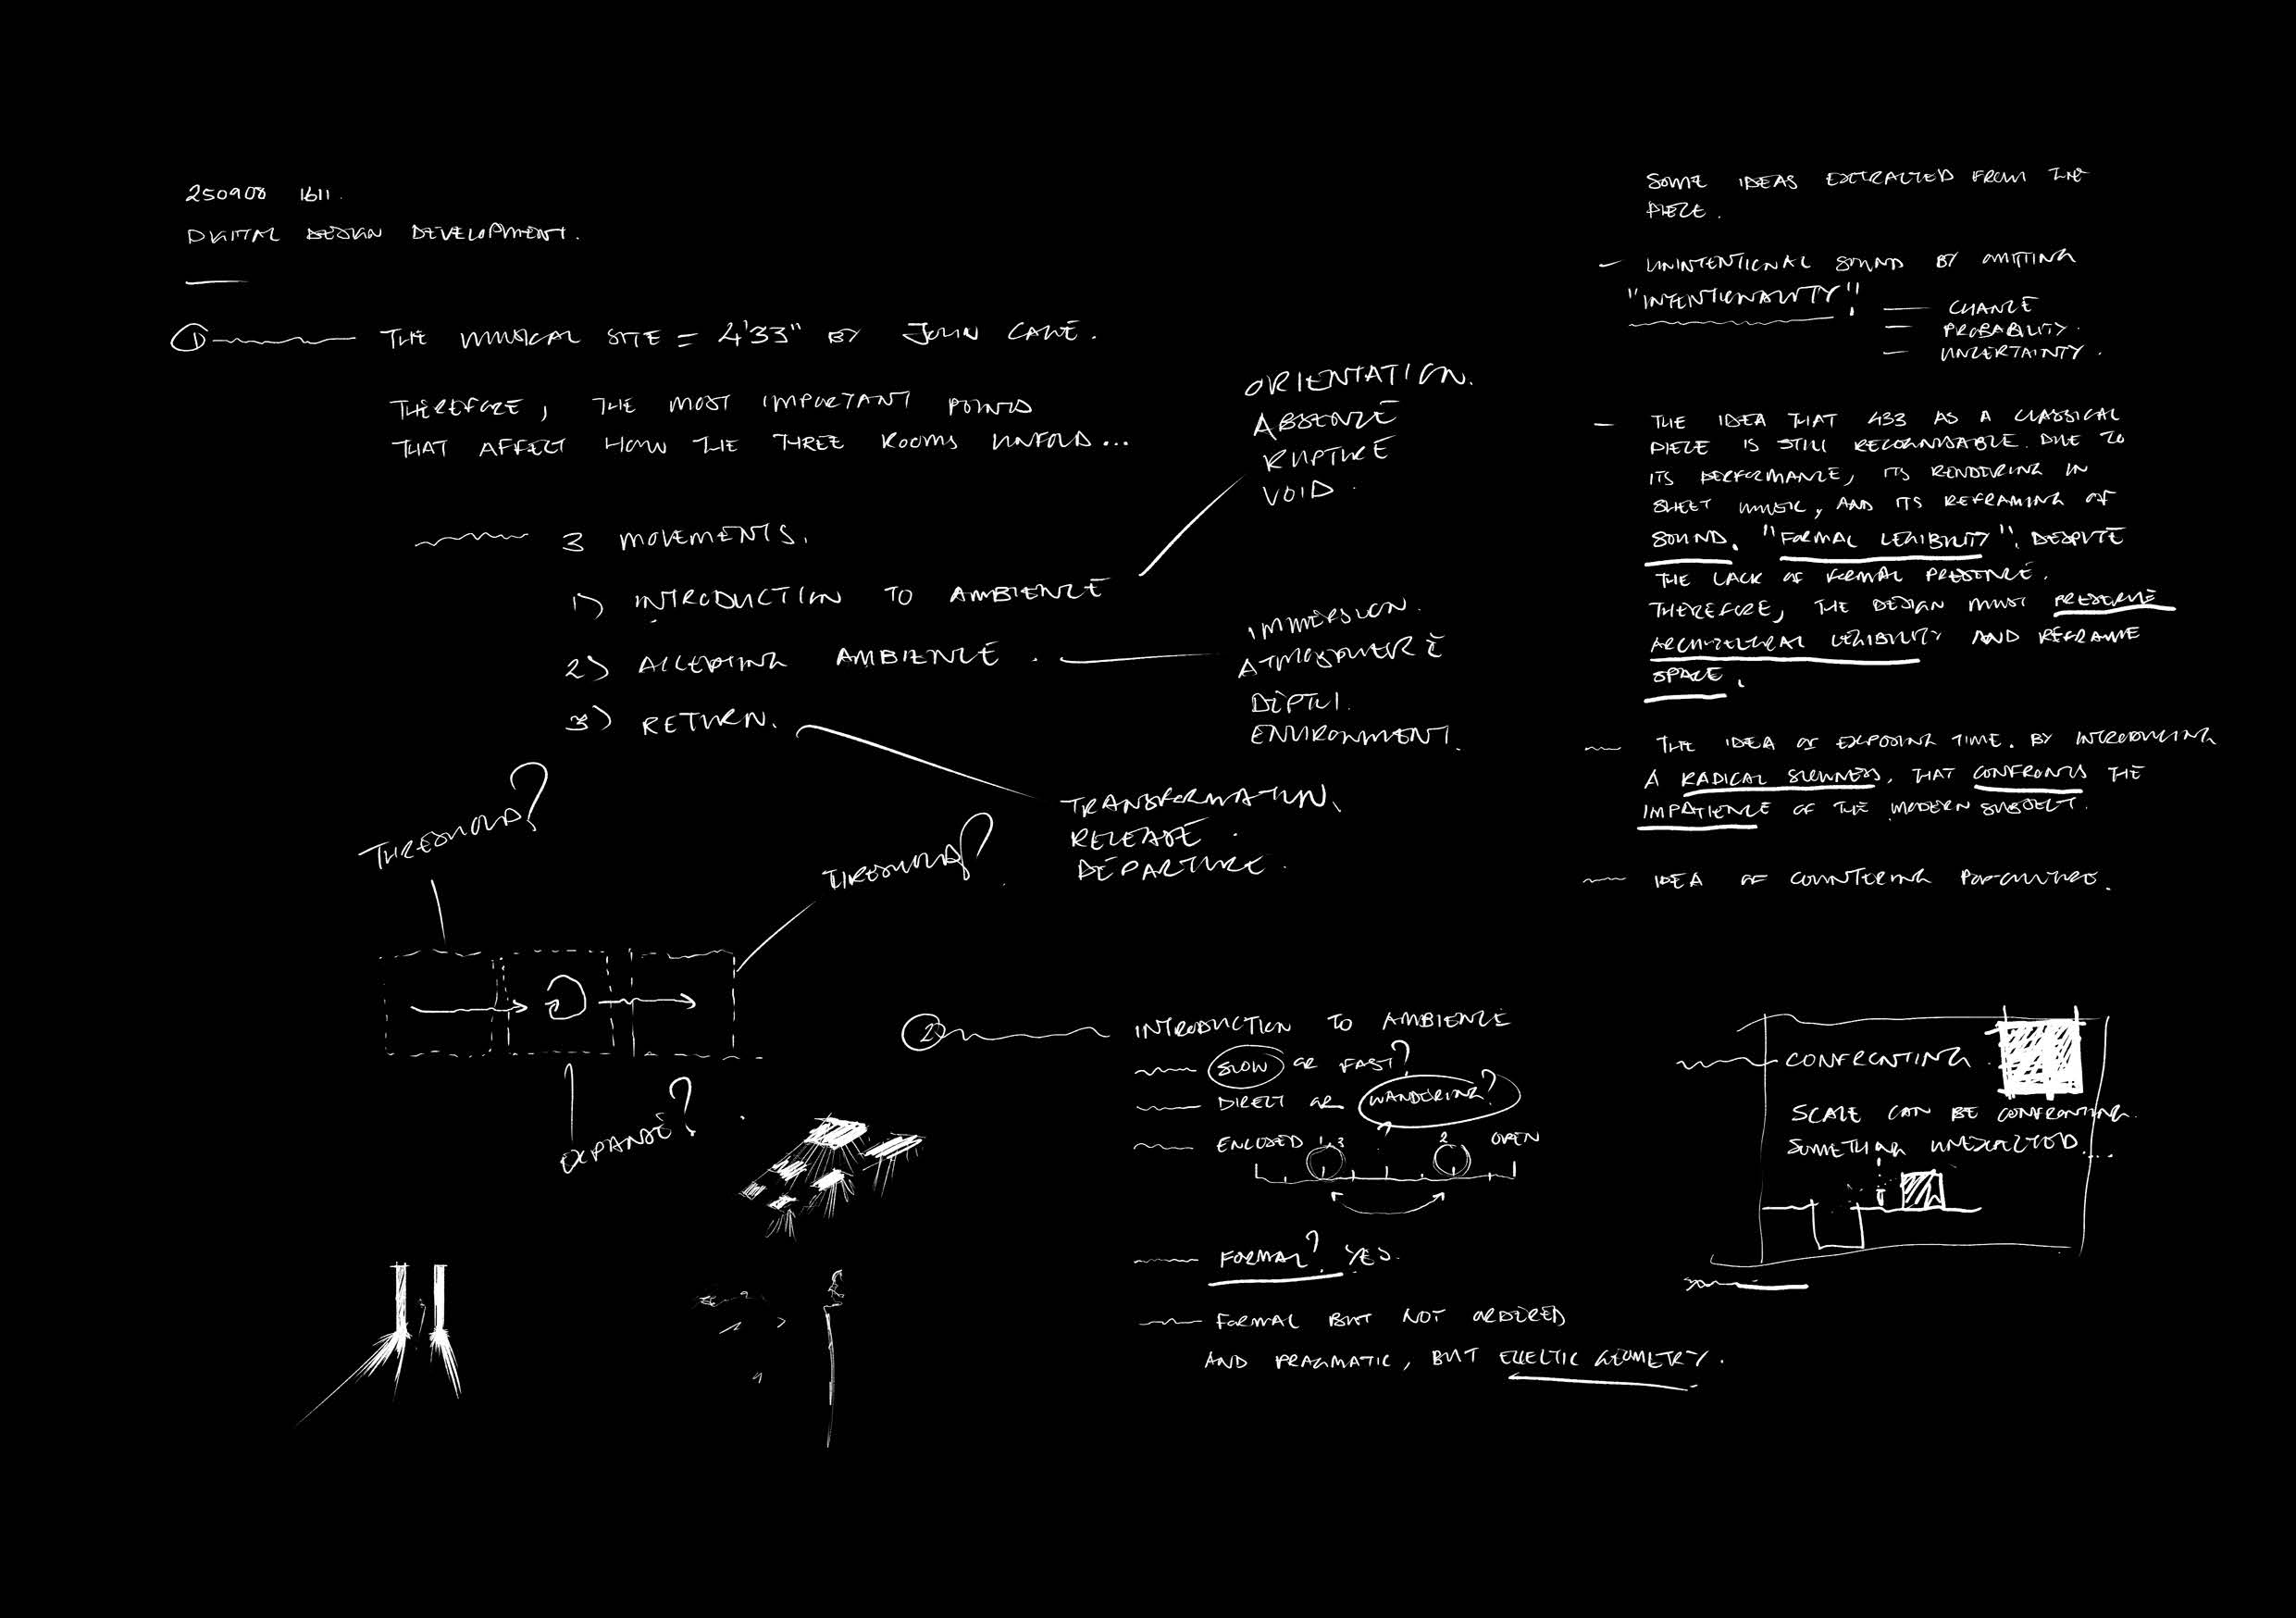 250908 1611.
DIGITAL DESIGN DEVELOPMENT.
1 THE MUSICAL SITE = 4'33" BY JOHN CAGE.
THEREFORE, THE MOST IMPORTANT POINTS
THAT AFFECT HOW THE THREE ROOMS UNFOLD...
3 MOVEMENTS.
1) INTRODUCTION TO AMBIENCE
ORIENTATION.
ABSENCE
RUPTURE
VOID.
2) ACCEPTING AMBIENCE.
IMMERSION.
ATMOSPHERE
DEPTH.
ENVIRONMENT.
3) RETURN.
TRANSFORMATION.
RELEASE.
DEPARTURE.
THRESHOLD?
THRESHOLD?
EXPANSE?
2 INTRODUCTION TO AMBIENCE
SLOW OR FAST?
DIRECT OR WANDERING?
ENCLOSED 1,3 2 OPEN
FORMAL? YES.
FORMAL BUT NOT ORDERED
AND PRAGMATIC, BUT ECLECTIC GEOMETRY.
SOME IDEAS EXTRACTED FROM THE
PIECE.
- UNINTENTIONAL SOUND BY OMITTING
"INTENTIONALITY"!
— CHANCE
— PROBABILITY.
— UNCERTAINTY.
- THE IDEA THAT 433 AS A CLASSICAL
PIECE IS STILL RECOGNISABLE. DUE TO
ITS PERFORMANCE, ITS RENDERING IN
SHEET MUSIC, AND ITS REFRAMING OF
SOUND. "FORMAL LEGIBILITY". DESPITE
THE LACK OF FORMAL PRESENCE.
THEREFORE, THE DESIGN MUST PRESERVE
ARCHITECTURAL LEGIBILITY AND REFRAME
SPACE.
THE IDEA OF EXPOSING TIME. BY INTRODUCING
A RADICAL SLOWNESS, THAT CONFRONTS THE
IMPATIENCE OF THE MODERN SUBJECT.
IDEA OF COUNTERING POP-CULTURE.
CONFRONTING
SCALE CAN BE CONFRONTING.
SOMETHING UNEXPECTED....